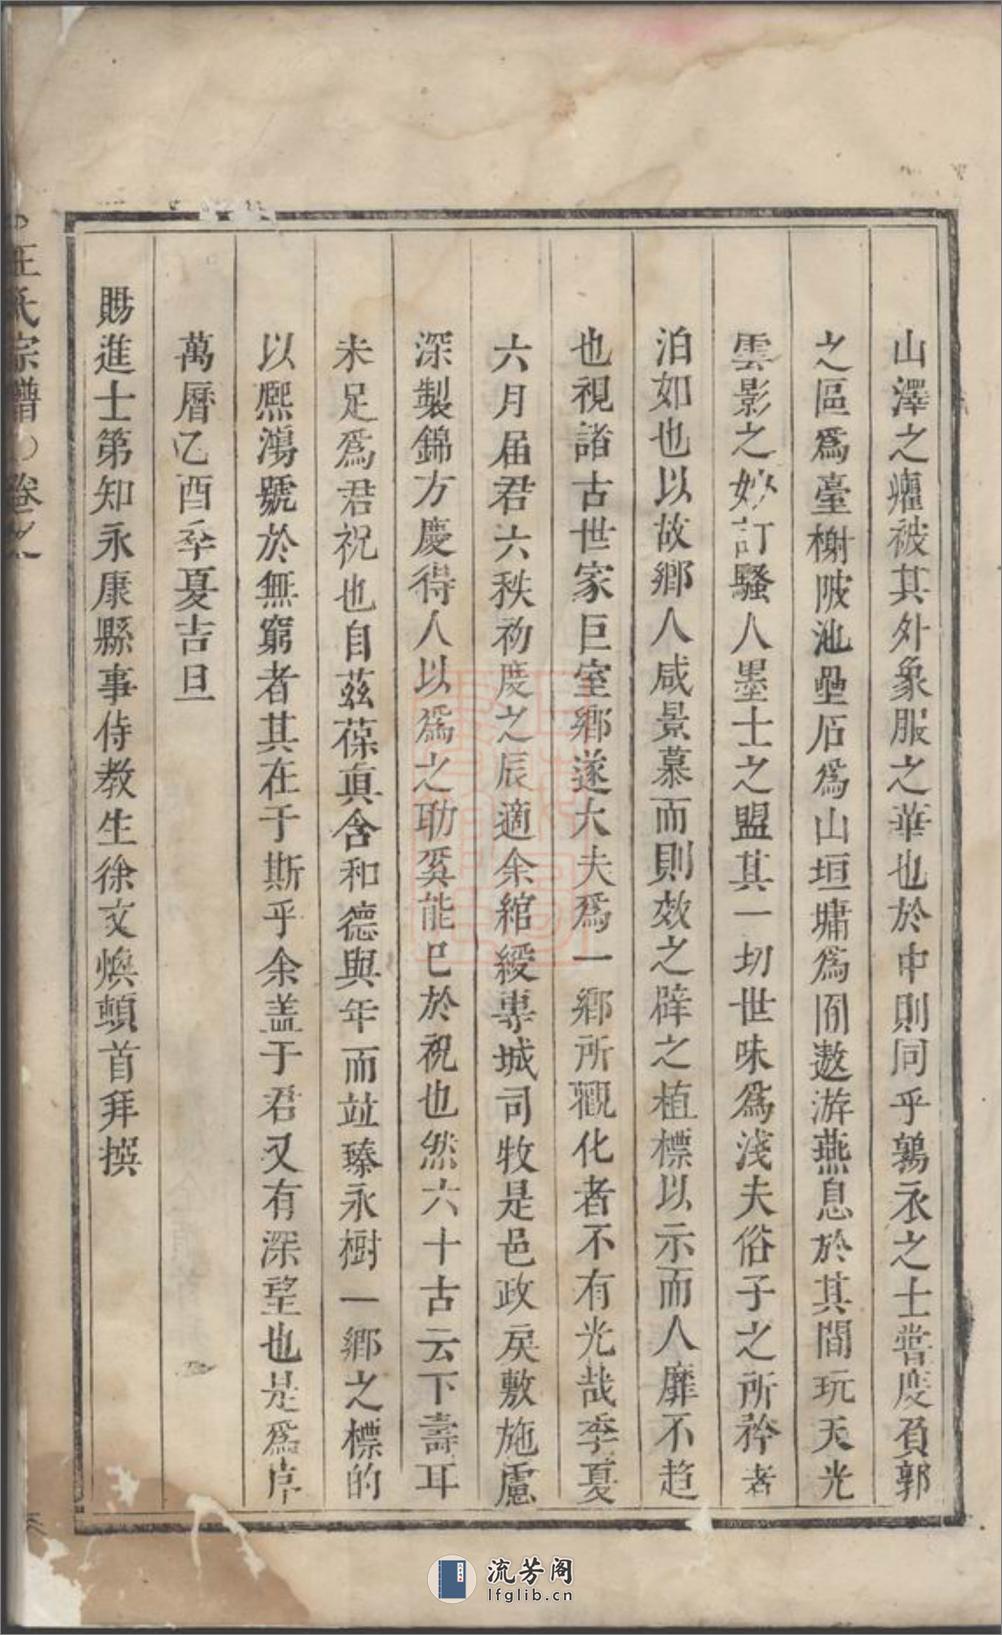 山澤之癯被其外象服之華也於中則同乎鶉衣之士嘗度負郭
之區爲臺榭陂池壘石爲山垣墉爲囿遨游燕息於其間玩天光
雲影之妙訂騷人墨士之盟其一切世味爲淺夫俗子之所矜者
泊如也以故鄉人咸景慕而則效之辟之植標以示而人靡不趋
也視諸古世家巨室鄉遂大夫爲一鄉所觀化者不有光哉季夏
六月届君六秩初度之辰適余綰綬專城司牧是邑政戾敷施慮
深製錦方慶得人以爲之助奚能已於祝也然六十古云下壽耳
未足爲君祝也自茲葆眞含和德與年而竝臻永樹一鄉之標的
以熈鴻號於無窮者其在于斯乎余盖于君又有深望也是爲序
萬曆乙酉季夏吉旦
賜進士第知永康縣事侍教生徐文煥頓首拜撰
王氏宗譜
卷之
流芳阁
lfglib.cn